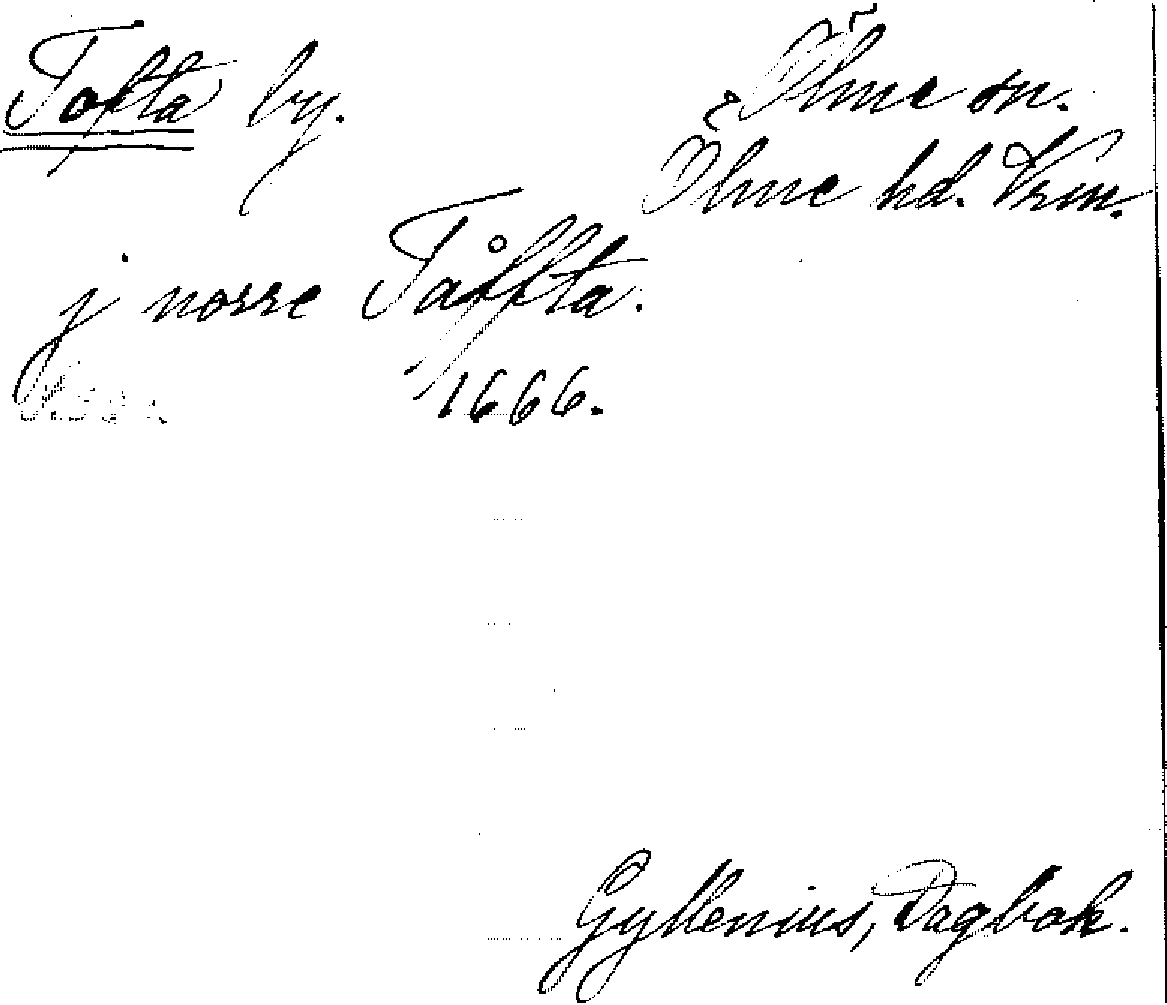 Tofta by.
Ölme sn.
Ölme hd. Vrm.
j norre Tåffta.
1666.
Gyllenius, Dagbok.